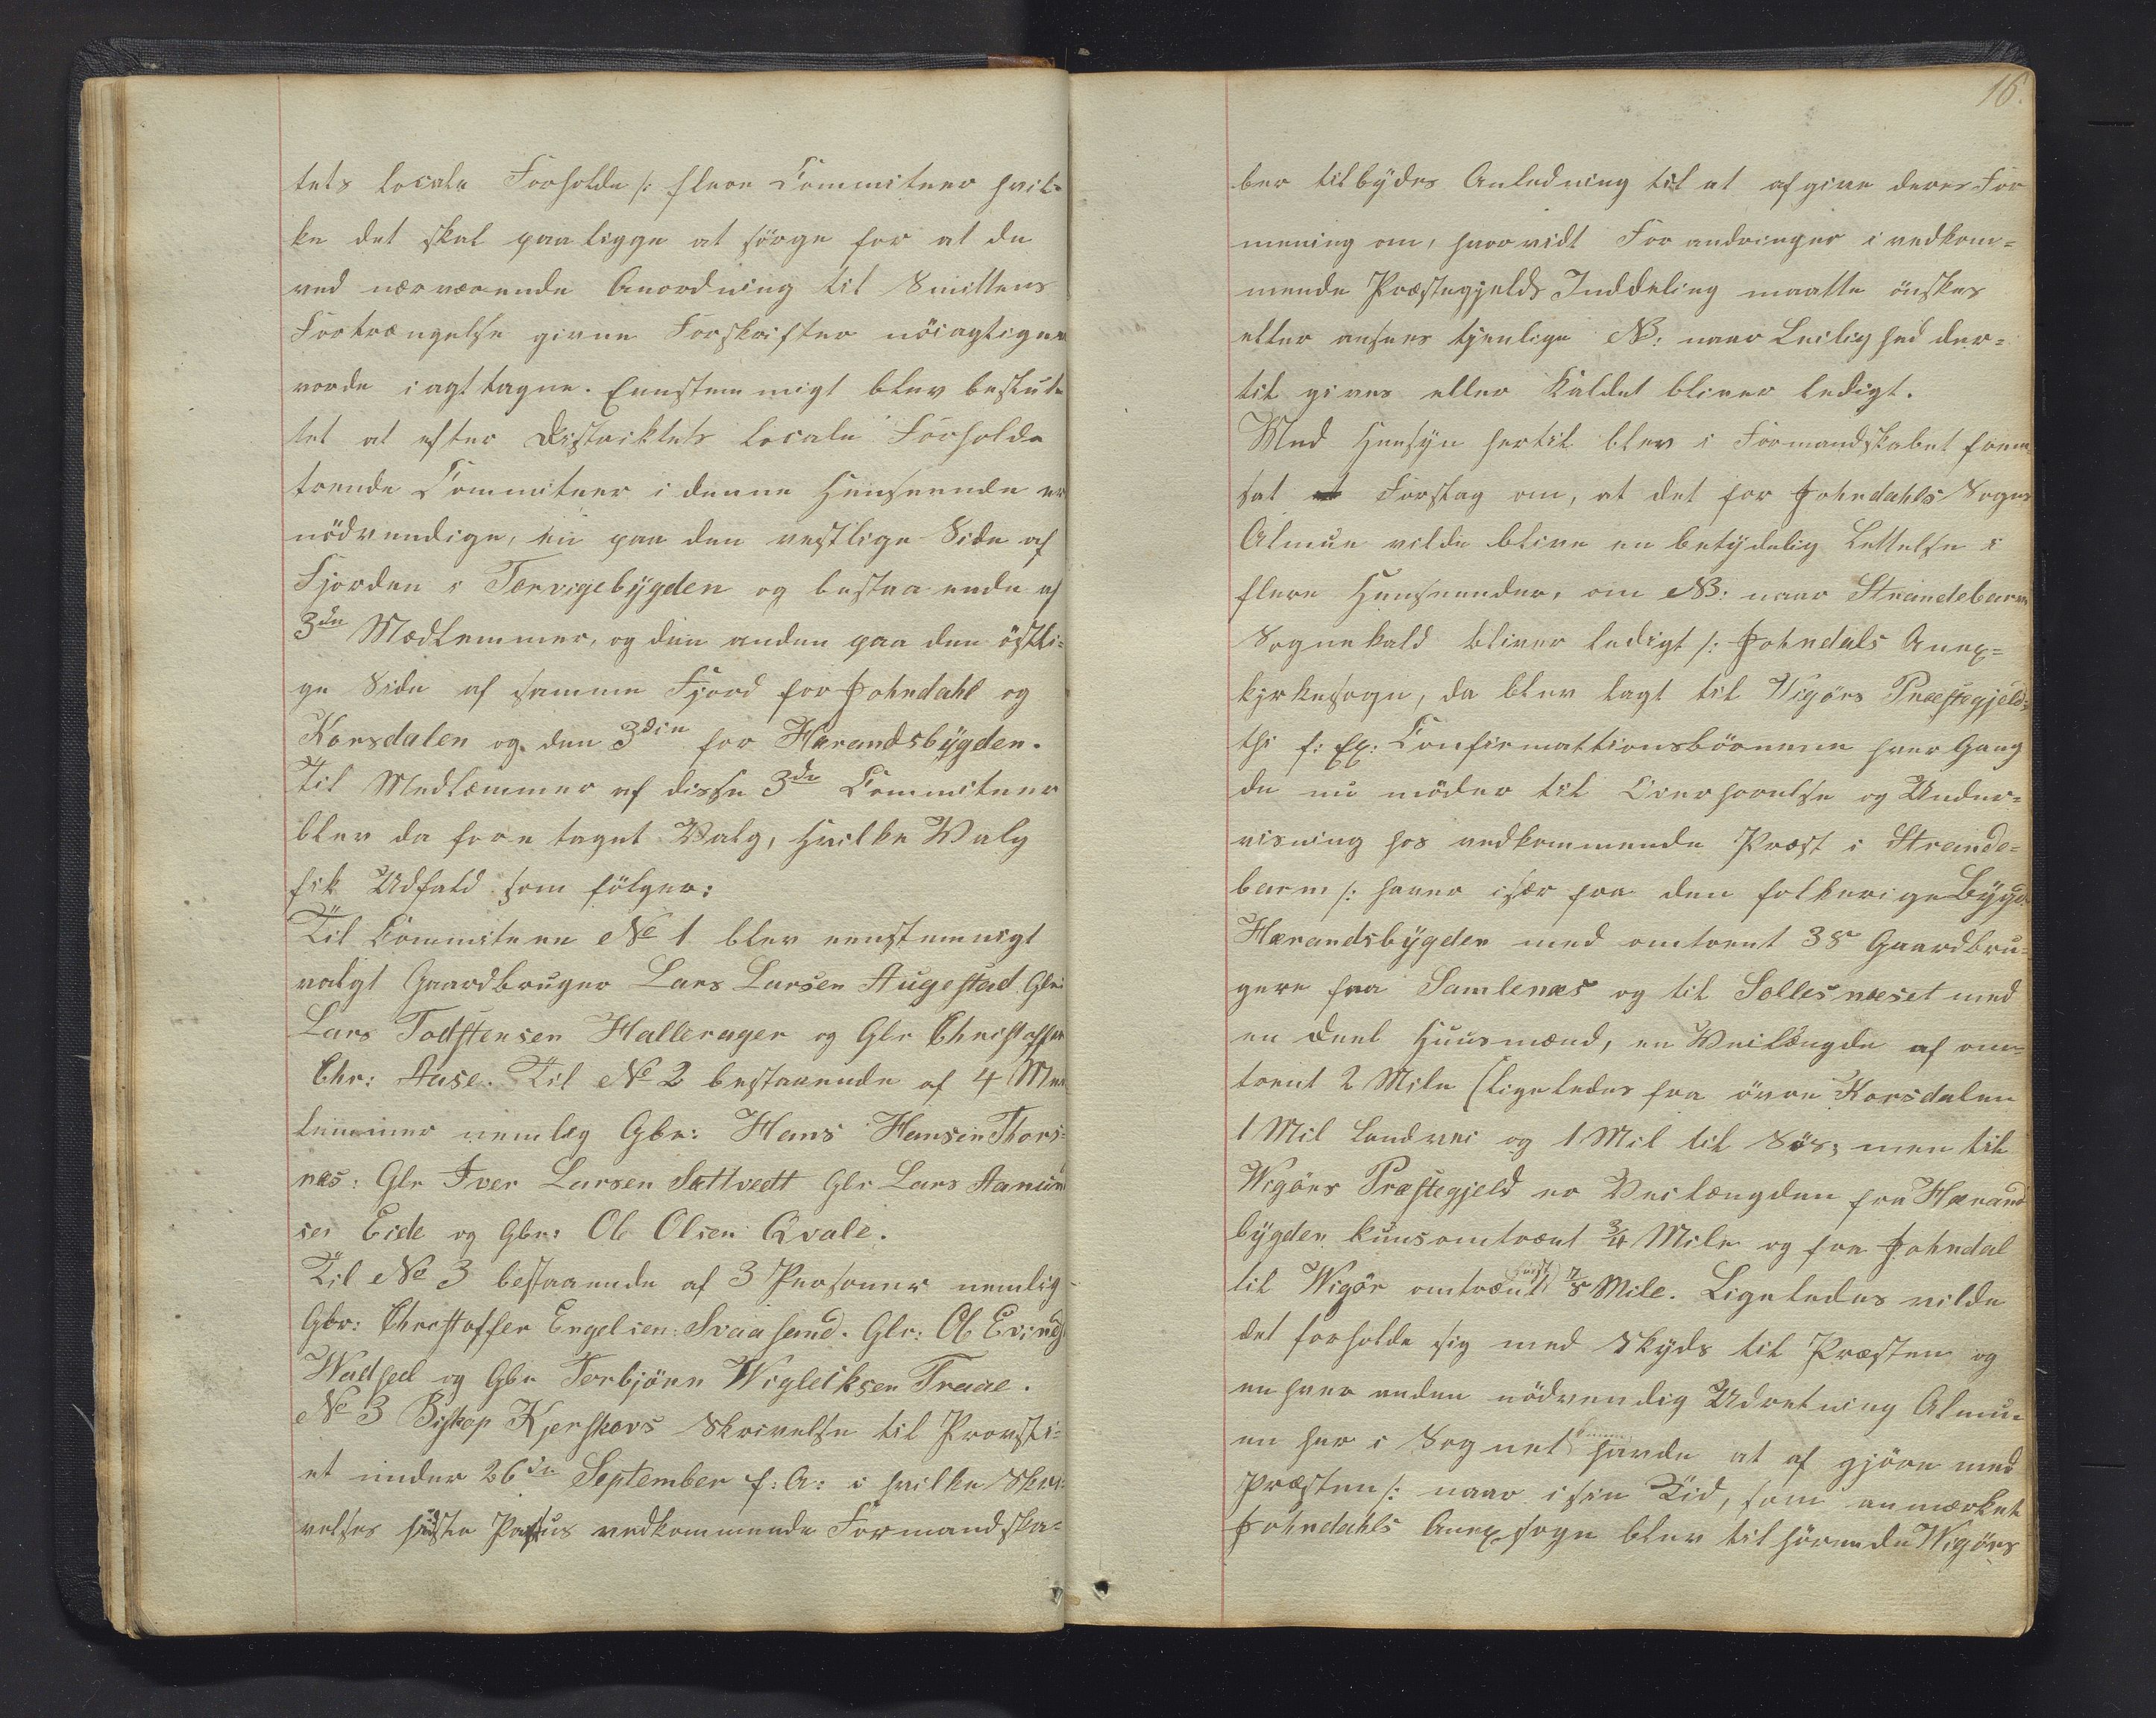 tets locale Forholde /: flere Committeer hvil-
ke det skal paaligge at sörge for at de
ved nærværende Anordning til Smittens
Fortrængelse givne Forskrifter nöiagtigen
vorde iagttagne. Eenstemmigt blev beslut-
tet at efter Distriktets locale Forholde
trende Committeer i denne Henseende er
nödvendige, en paa den vestlige Side af
Fjorden i Torvigebÿgden og bestaaende af
3de Medlemmer, og den anden paa den östli-
ge Side af samme Fjord for Johndahl og
Korsdalen og den 3die for Herandsbÿgden.
Til Medlemmer af disse 3de Committeer
blev da foretaget Valg, hvilke Valg
fik Udfald som fölger:
Til Committeen No 1 blev eenstemmigt
valgt Gaardbruger Lars Larsen Augestad Gbr:
Lars Todstensen Hallerager og Gbr Christoffer
Chr: Aase. Til No 2 bestaaende af 4 Med
lemmer nemlig Gbr: Hans Hansen Thors-
næs: Gbr Iver Larsen Sattvedt Gbr Lars Aamun
sen Eide og Gbr: Ole Olsen Qvale.
Til No 3 bestaaende af 3 Personer nemlig
Gbr: Christoffer Engelsen Svaasand. Gbr: Ole Evinds
Wadsel og Gbr Torbjörn Wigleiksen Traae.
No 3 Biskop Kjerskovs Skrivelse til Provsti-
et under 26de September f: A: i hvilke Skri-
velses sidste Passus vedkommende Formandska-
16.
ber tilbÿdes Anledning til at afgive deres For
mening om, hvorvidt Forandringer i vedkom-
mende Præstegjelds Inddeling maatte önskes
eller ansees tjenlige NB: naar Leilighed der-
til gives eller Kaldet bliver ledigt.
Med Hensÿn hertil blev i Formandskabet frem
sat Forslag om, at det for Johndahls Sogns
Almue vilde blive en betÿdelig Lettelse i
flere Henseender, om NB: naar Strandebarm
Sognekald bliver ledigt /: Johndals Anex-
kirkesogn, da blev lagt til Wigörs Præstegjeld;
thi f: Ex: Confirmattionsbörnene hver Gang
de nu möder til Overhörelse og Under-
visning hos vedkommende Præst i Strande-
barm /: haver især fra den folkerige Bÿgd
Herandsbÿgden med omtrent 38 Gaardbru-
gere fra Samlenæs og til Sollesnæset med
en Deel Huusmænd, en Veilængde af om
trent 2 Mile (ligeledes fra övre Korsdalen
1 Mil Landvei og 1 Mil til Söes; men til
Wigörs Præstegjeld er Veilængden fra Herand
bÿgden kuns omtrent 3/4 Mile og fra Johndal
til Wigör omtrent 7/8 Mile. Ligeledes vilde
det forholde sig med Skÿds til Præsten og
en hver anden nödvendig Udretning Almu-
en her i Sognet havde at afgjöre med
Præsten /: naar i sin Tid, som anmærket
Johndahls Anexsogn blev tilhörende Wigörs